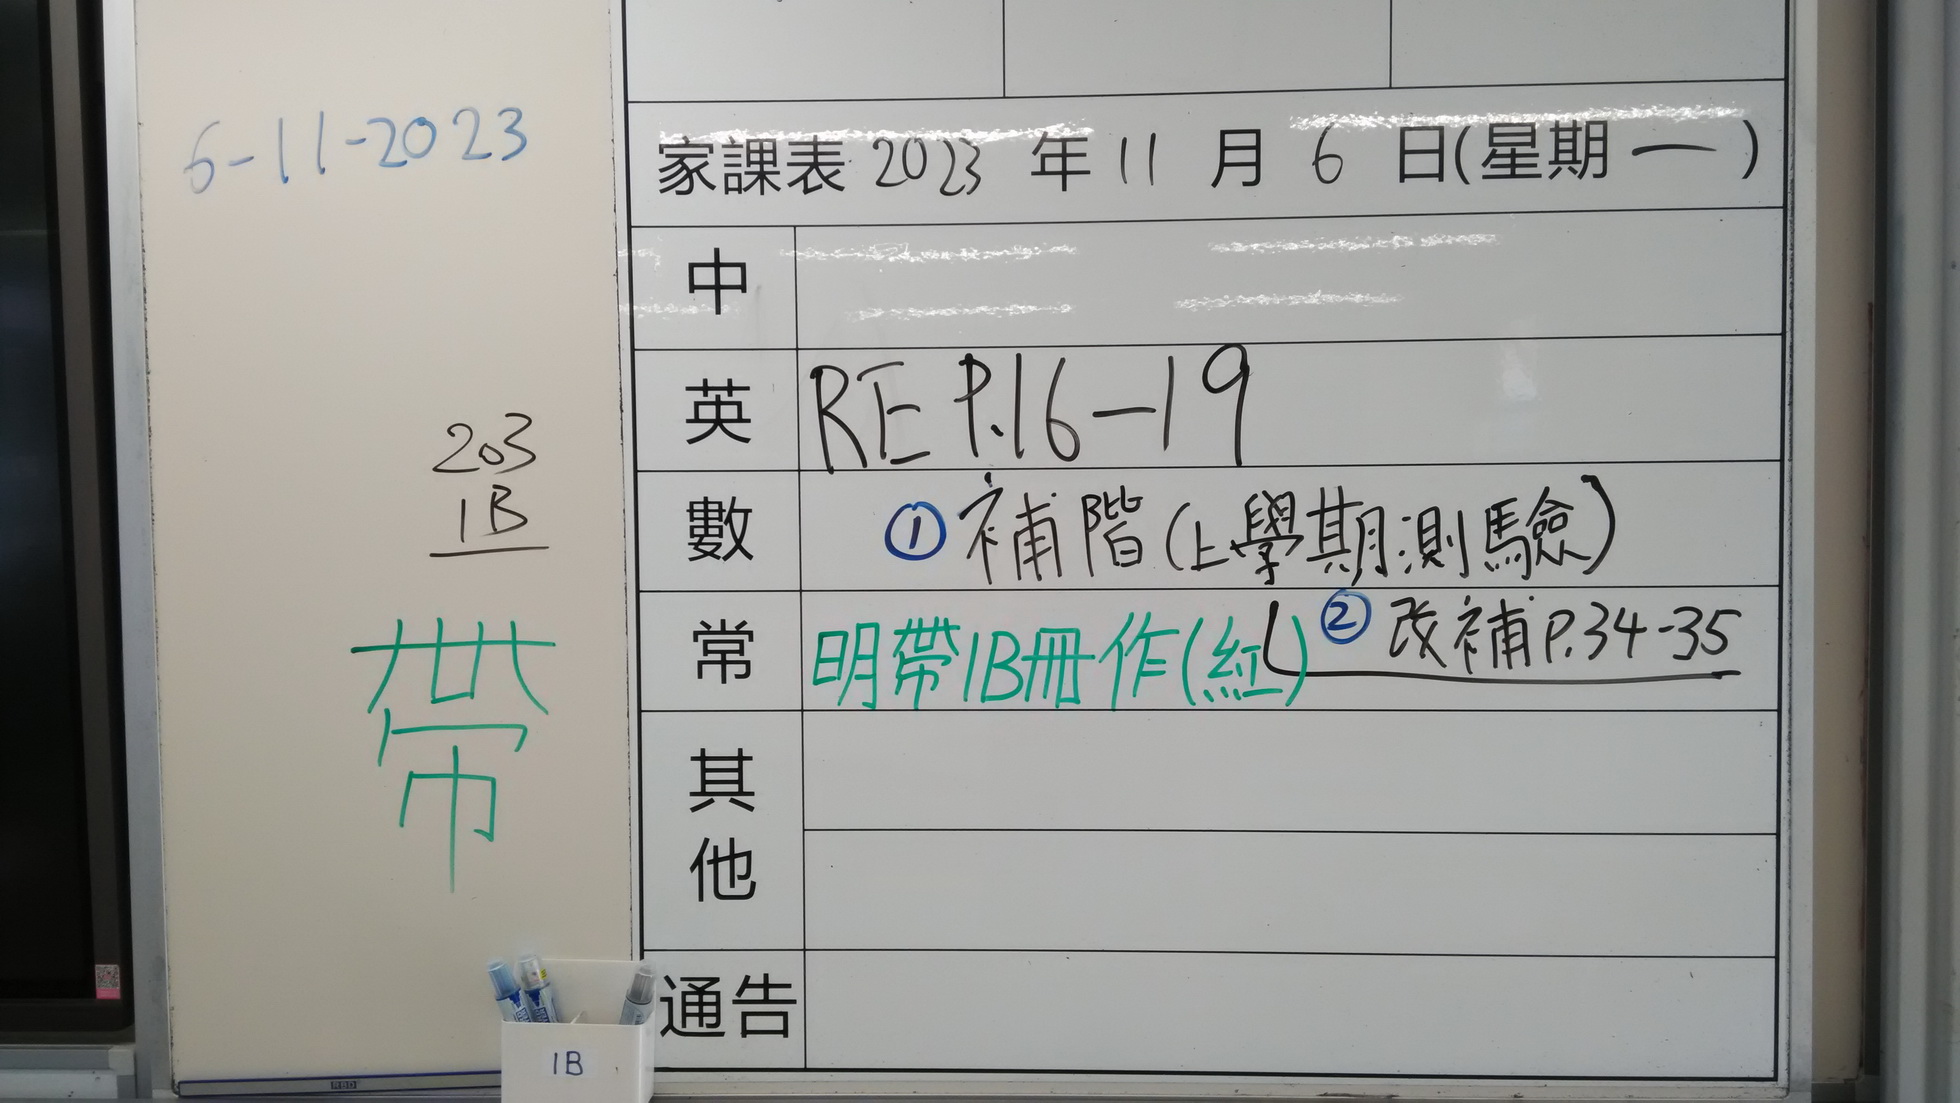 6-11-2023
203
1B
帶
家課表 2023 年 11 月 6 日(星期一)
中
英 RE P.16-19
數 ① 補階(上學期測驗)
② 改補 P.34-35
常 明帶1B冊作(紅)
其他
通告
1B